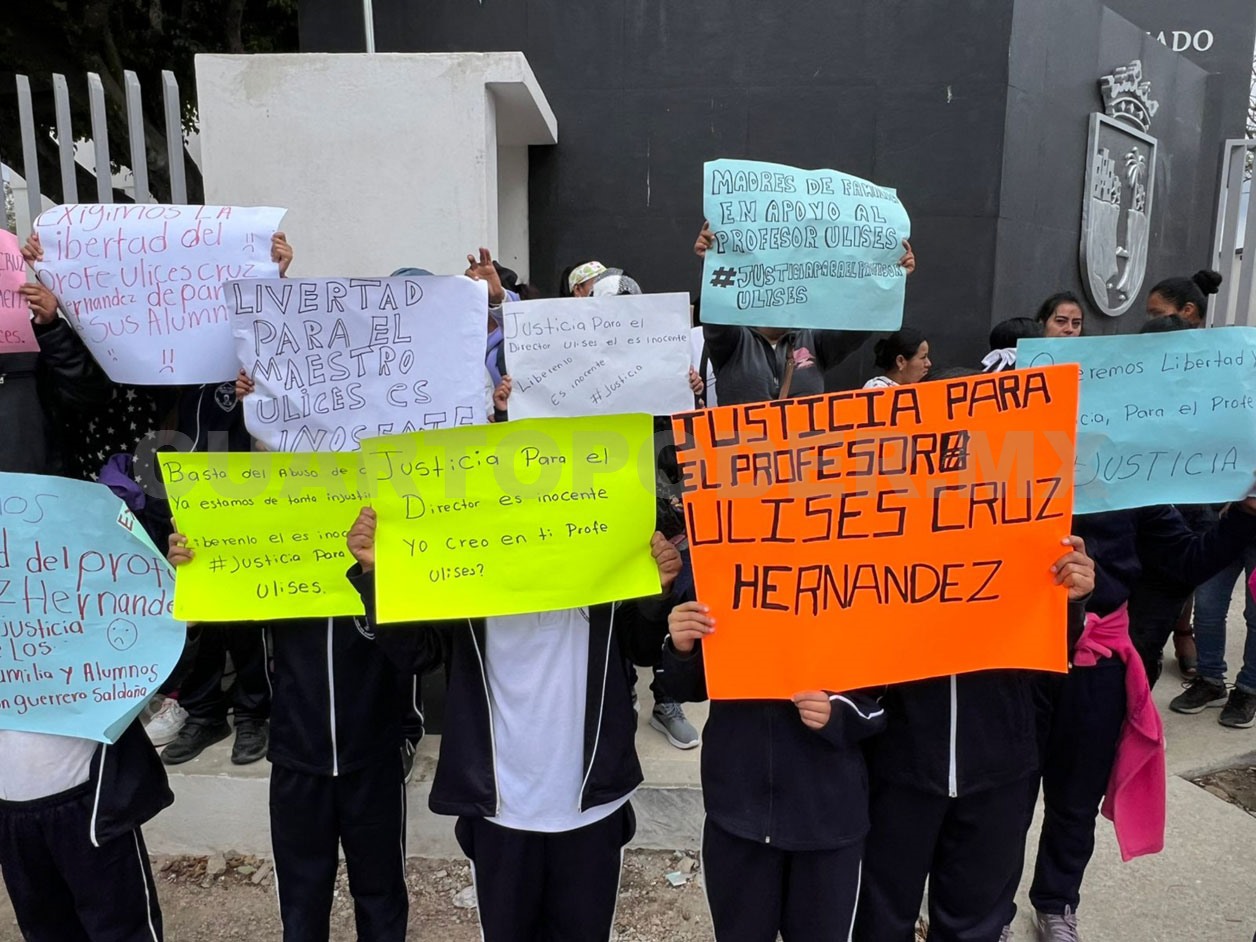 ADO
EXIGIMOS LA
libertad del
profe Ulices Cruz
Hernandez de parte
Sus Alumn
!! !!
CRUZ
LIVERTAD
PARA EL
MAESTRO
ULICES ES
INOSENTE
Justicia Para el
Director Ulises el es inocente
Liberenlo
Es inocente
#Justicia
MADRES DE FAMILIA
EN APOYO AL
PROFESOR ULISES
#JUSTICIAPARAELPROFESOR
ULISES
eremos Libertad y
cia, Para el Profe
#JUSTICIA
Basta del Abuso de
Ya estamos de tanta injusti
Liberenlo el es inoc
#Justicia Para
Ulises.
Justicia Para el
Director es inocente
Yo creo en ti Profe
Ulises?
JUSTICIA PARA
EL PROFESOR#
ULISES CRUZ
HERNANDEZ
mos
d del profe
Z Hernande
justicia
e Los
milia y Alumnos
on guerrero Saldaña
CUARTOPODER.MX